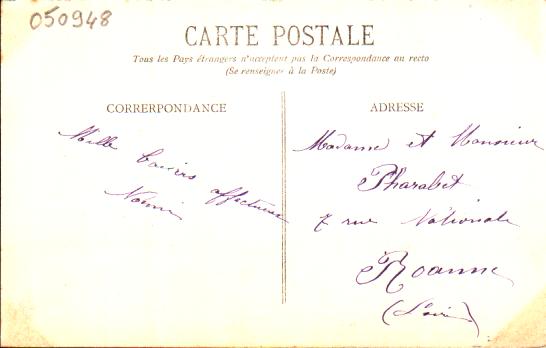 050948
CARTE POSTALE
Tous les Pays étrangers n'acceptent pas la Correspondance au recto
(Se renseigner à la Poste)
CORRERPONDANCE
Mille baisers affectueux
Noémi
ADRESSE
Madame et Monsieur
Pharabet
7 rue Nationale
Roanne
(Loire)